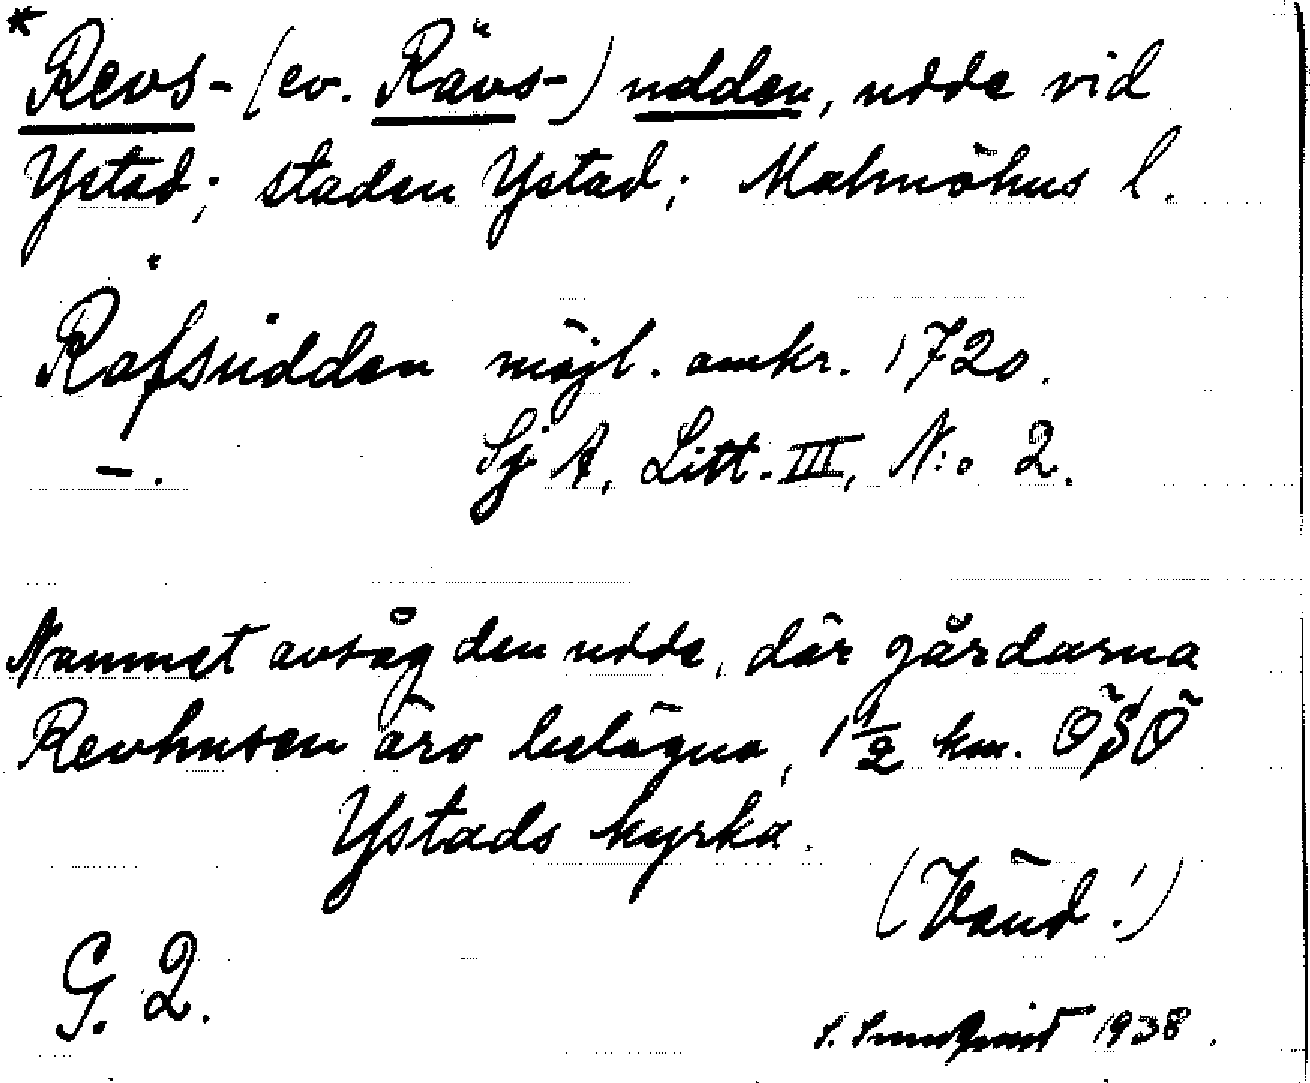 * Revs- (ev. Rävs-) udden, udde vid
Ystad; staden Ystad; Malmöhus l.
Råfsudden möjl. omkr. 1720.
— . Sj A, Litt. III, N:o 2.
Namnet avsåg den udde, där gårdarna
Revhusen äro belägna, 1 1/2 km. ÖSÖ
Ystads kyrka.
(Vänd!)
G. 2.
S. Sundqvist 1938.